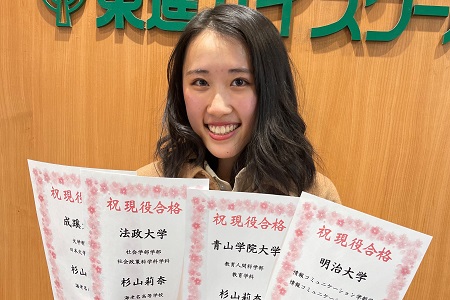 東進ハイスクール
祝 現役合格
成蹊
杉山
祝 現役合格
法政大学
社会学部学部
社会政策科学科学科
杉山莉奈
海老名高等学校
祝 現役合格
青山学院大学
教育人間科学部
教育学科
杉山莉奈
祝 現役合格
明治大学
情報コミュニケーション学部
情報コミュニケーション
杉山